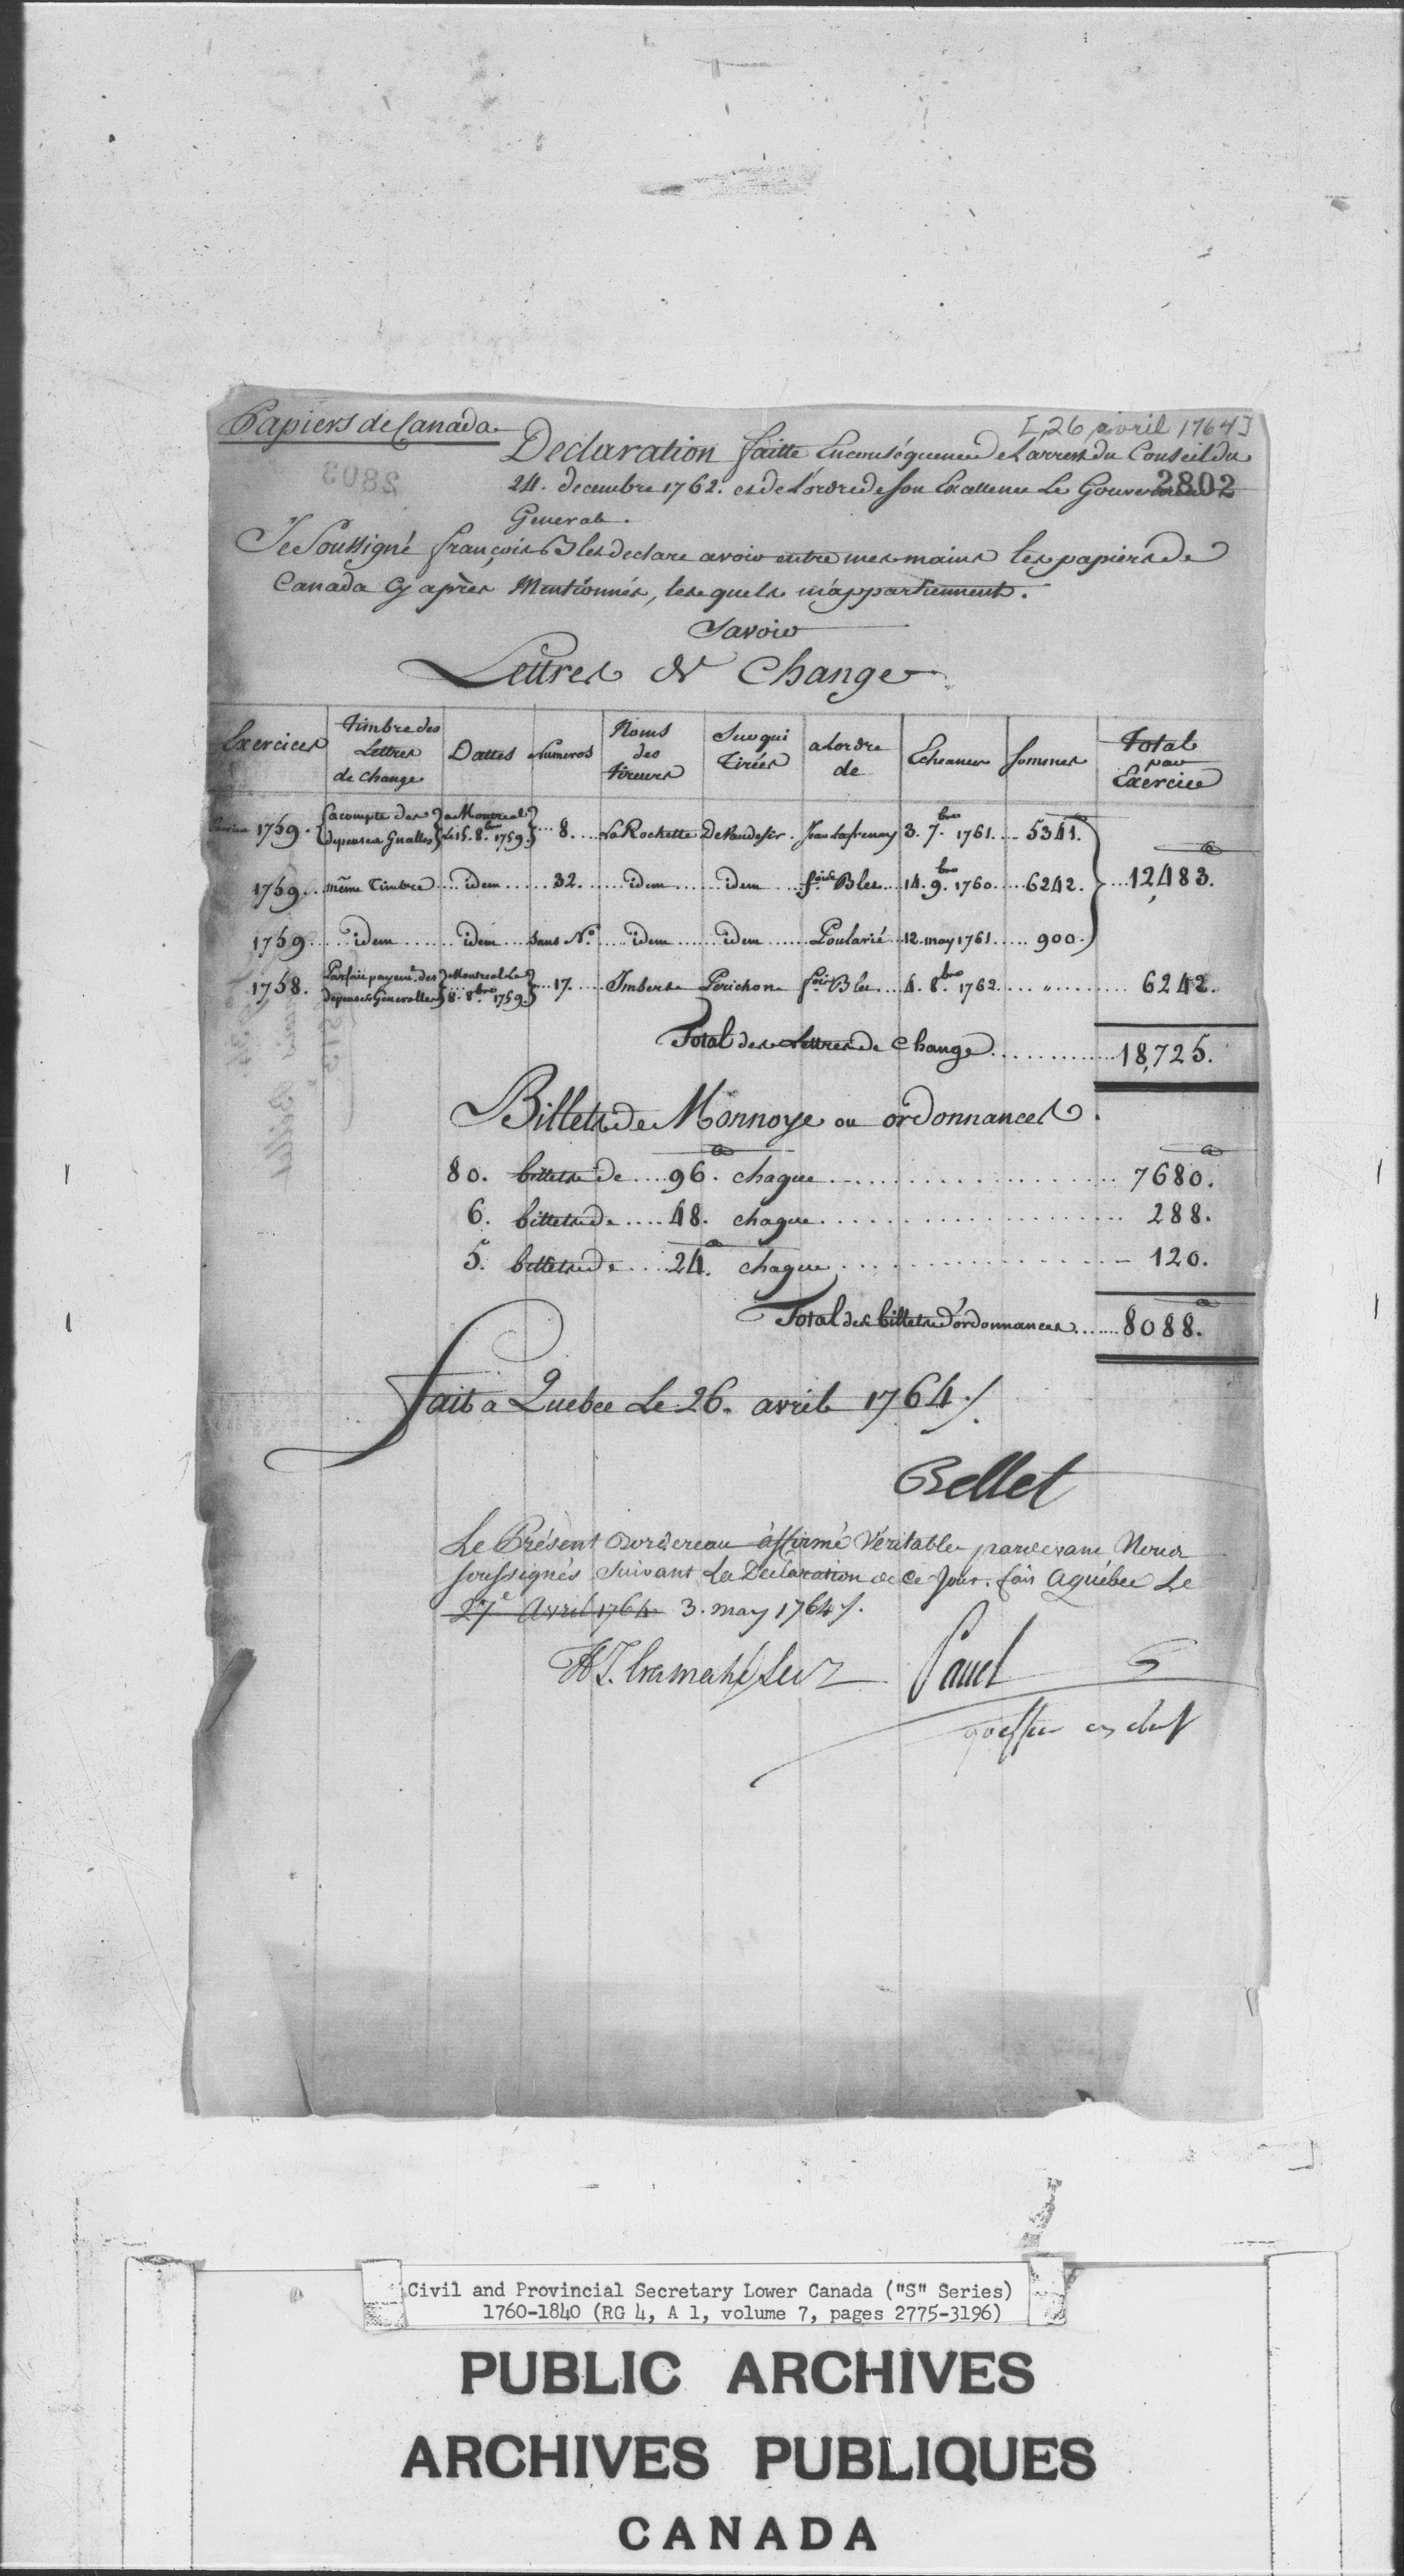 Papiers de Canada
[26 avril 1764]
Declaration faitte Enconséquence de Larrest du Conseil du
24. decembre 1762. et de Lordre de Son Excellence Le Gouverneur
2802
General.
Je Soussigné françois Blet declare avoir entre mes mains les papiers de
Canada Cy après Mentionnés, lesquels m'appartiennent.
Savoir
Lettres de Change
Exercices Timbre des Lettres de change Dattes Numeros Noms des tireurs Sur qui Tirées a Lordre de Echeances Sommes Total par Exercice
1759. {a compte des depenses Gnalles} {a Montreal le 15. 8.bre 1759.} 8. La Rochette De Vaudesir. Jean Lafrenay 3. 7.bre 1761. 5341.
1759. même Timbre idem 32. idem idem f.ois Blet 14. 9.bre 1760. 6242. } 12,483.
1759 idem idem sans N.o idem idem Poularié 12. may 1761. 900.
1758. Parfait payem.t des depenses Generalles {Montreal Le 8. 8.bre 1759.} 17. Imbert Perichon f.ois Blet 4. 8.bre 1762. " 6242.
Total des Lettres de Change 18,725.
Billets de Monnoye ou ordonnances.
80. billets de 96. chaque 7680.
6. billets de 48. chaque 288.
5. billets de 24. chaque 120.
Total des billets d'ordonnances 8088.
fait a Quebec Le 26. avril 1764 /.
Bellet
Le Présent Bordereau affirmé Véritable pardevant Nous
soussignés suivant La Declaration de Ce Jour. fait a québec Le
27e Avril 1764 3. may 1764 /.
H.T. Cramahé
Panet
greffier en chef
Civil and Provincial Secretary Lower Canada ("S" Series)
1760-1840 (RG 4, A 1, volume 7, pages 2775-3196)
PUBLIC ARCHIVES
ARCHIVES PUBLIQUES
CANADA